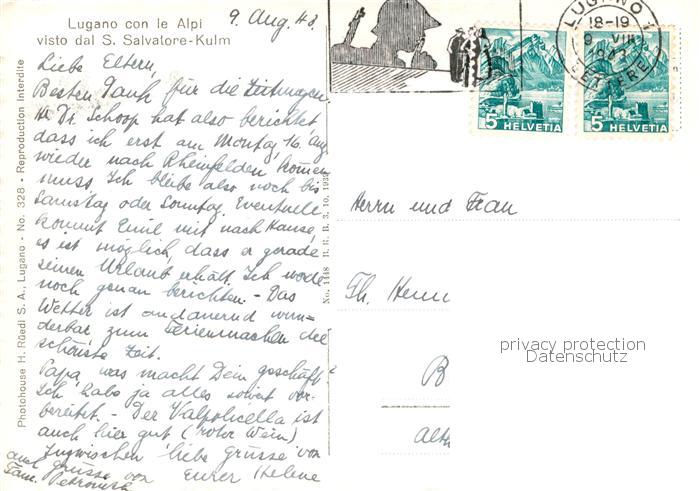 Lugano con le Alpi
visto dal S. Salvatore-Kulm
9. Aug. 43.
Liebe Eltern,
Besten Dank für die Zeitungen.
H. Di Schoop hat also berichtet,
dass ich erst am Montag, 16. Aug.
wieder nach Rheinfelden kommen
muss. Ich bleibe also noch bis
Samstag oder Sonntag. Eventuell
kommt Emil mit nach Hause,
es ist möglich, dass er gerade
seinen Urlaub erhält. Ich werde
noch genau berichten. - Das
Wetter ist andauernd wun-
derbar, zum Ferienmachen die
schönste Zeit.
Papa, was macht Dein Geschäft?
Ich habe ja alles soweit vor-
bereitet. - Der Valpolicella ist
auch hier gut (roter Wein)
Inzwischen liebe Grüsse von
Eurer Helene
auch Grüsse von
Fam.
Photohouse H. Rüedi S. A., Lugano - No. 328 - Reproduction Interdite
No. 1448 B. R. B. 3. 10. 1939
LUGANO 1
18-19
9. VIII
LETTERE
5 HELVETIA
5 HELVETIA
Herrn und Frau
Th.
B
Alt
privacy protection
Datenschutz